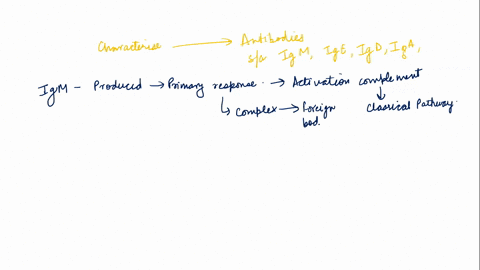 Characterise → Antibodies
s/a IgM, IgE, IgD, IgA,
IgM - Produced → Primary response → Activation complement
↳ Complex → Foreign bod. ↓ Classical Pathway.